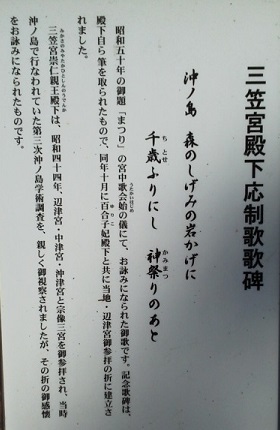 三笠宮殿下応制歌歌碑
沖ノ島 森のしげみの岩かげに
千歳ふりにし 神祭りのあと
ちとせ
かみまつ
昭和五十年の御題「まつり」の宮中歌会始の儀にて、お詠みになられた御歌です。記念歌碑は、
うたかいはじめ
殿下自ら筆を取られたもので、同年十月に百合子妃殿下と共に当地・辺津宮御参拝の折に建立さ
ゆりこ
れました。
三笠宮崇仁親王殿下は、昭和四十四年、辺津宮・中津宮・沖津宮と宗像三宮を御参拝され、当時
みかさのみやたかひとしんのうでんか
沖ノ島で行なわれていた第三次沖ノ島学術調査を、親しく御視察されましたが、その折の御感懐
をお詠みになられたものです。